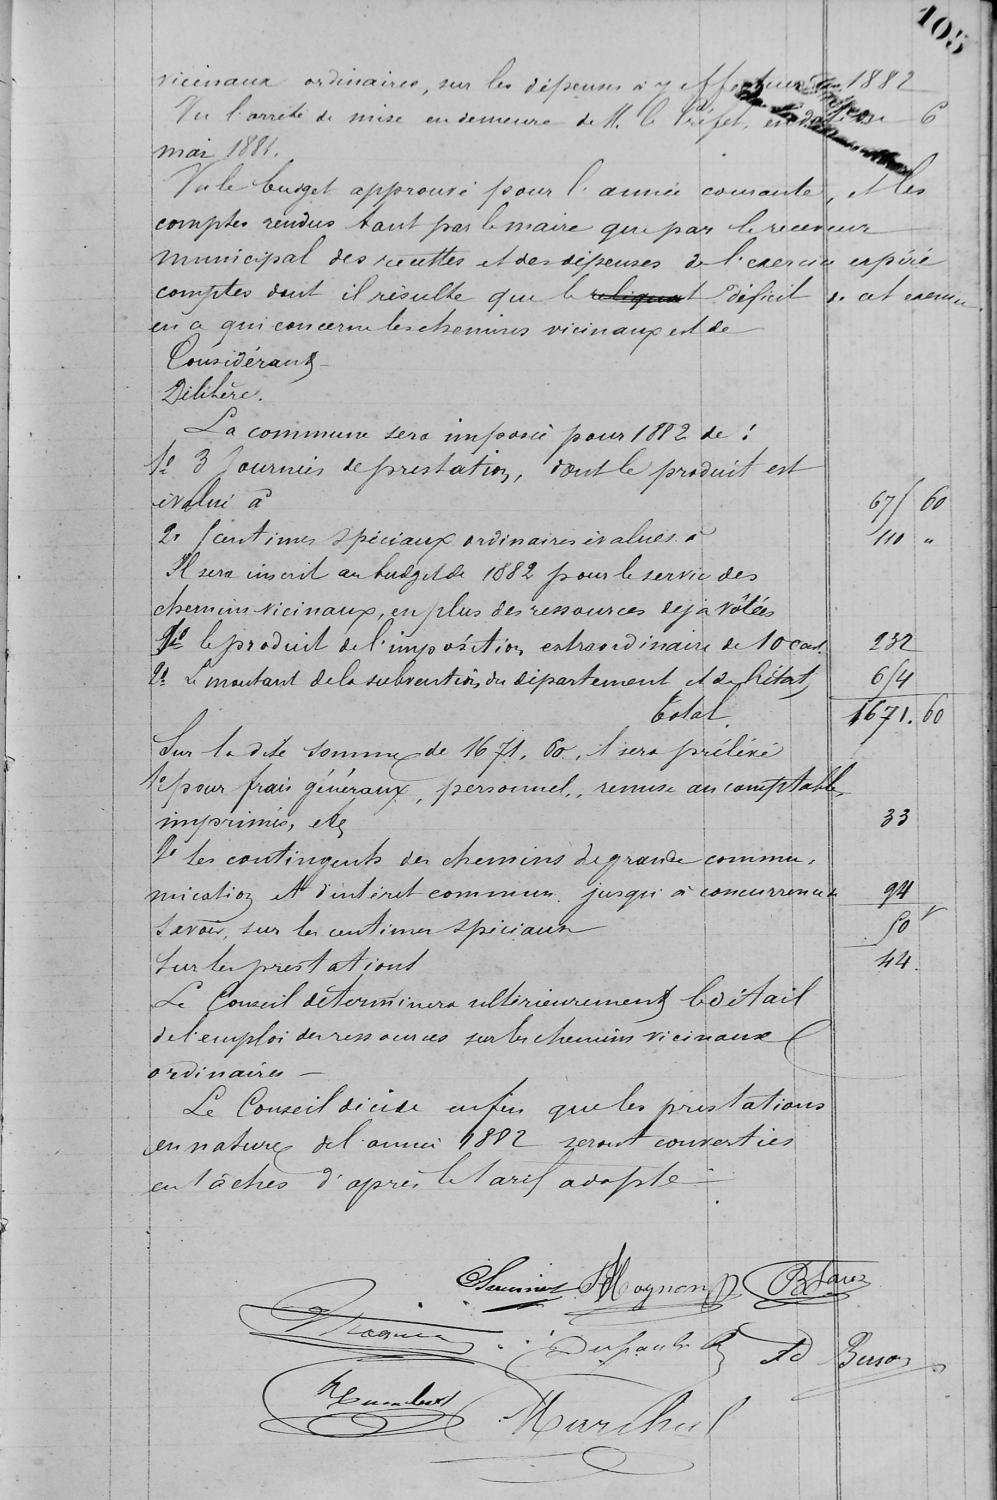 105
vicinaux ordinaires, sur les dépenses à y effectuer en 1882
Vu l'arrêté de mise en demeure de M. le Préfet, en date du 6
mai 1881.
Vu le budget approuvé pour l'année courante, et les
comptes rendus tant par le maire que par le receveur
municipal des recettes et des dépenses de l'exercice expiré
comptes dont il résulte que le reliquat déficit de cet exercice
en ce qui concerne les chemins vicinaux est de
Considérant
Délibère.
La commune sera imposée pour 1882 de :
1º 3 Journées de prestation, dont le produit est
évalué à 675 60
2º 5 centimes spéciaux ordinaires évalués à 110 "
Il sera inscrit au budget de 1882 pour le service des
chemins vicinaux, en plus des ressources déjà votées
1º le produit de l'imposition extraordinaire de 10 cent. 232
2º Le montant de la subvention du département et de l'état 654
Total 1671.60
Sur la dite somme de 1671.60, il sera prélevé
1º pour frais généraux, personnel, remise au comptable,
imprimés, etc 33
2º les contingents des chemins de grande commu-
nication et d'intérêt commun jusqu'à concurrence de 94
Savoir, sur les centimes spéciaux 50
Sur les prestations 44
Le Conseil déterminera ultérieurement le détail
de l'emploi des ressources sur les chemins vicinaux
ordinaires —
Le Conseil décide enfin que les prestations
en nature de l'année 1882 seront converties
en tâches d'après le tarif adopté —
Magnon
Humbert
Marchal